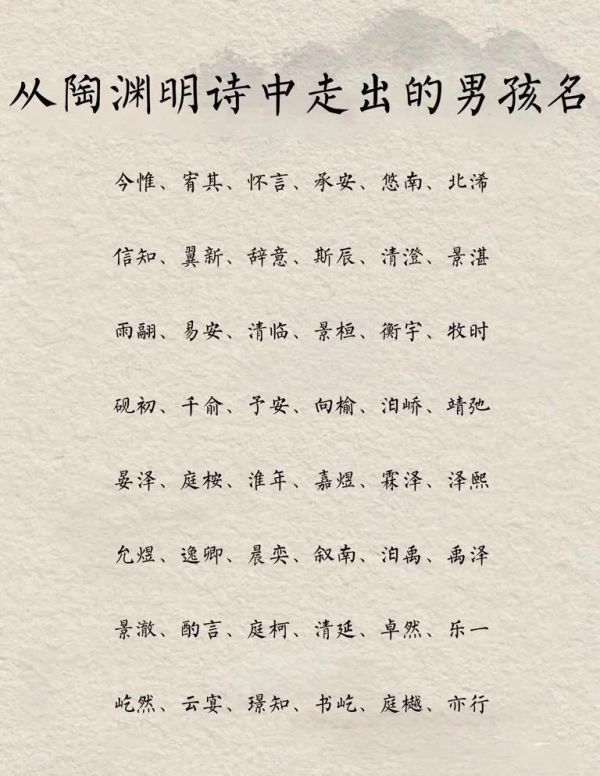 从陶渊明诗中走出的男孩名
今惟、宥其、怀言、承安、悠南、北浠
信知、翼新、辞意、斯辰、清澄、景湛
雨翮、易安、清临、景桓、衡宇、牧时
砚初、千俞、予安、向榆、泊峤、靖弛
晏泽、庭桉、淮年、嘉煜、霖泽、泽熙
允煜、逸卿、晨奕、叙南、泊禹、禹泽
景澈、酌言、庭柯、清延、卓然、乐一
屹然、云宴、璟知、书屹、庭樾、亦行